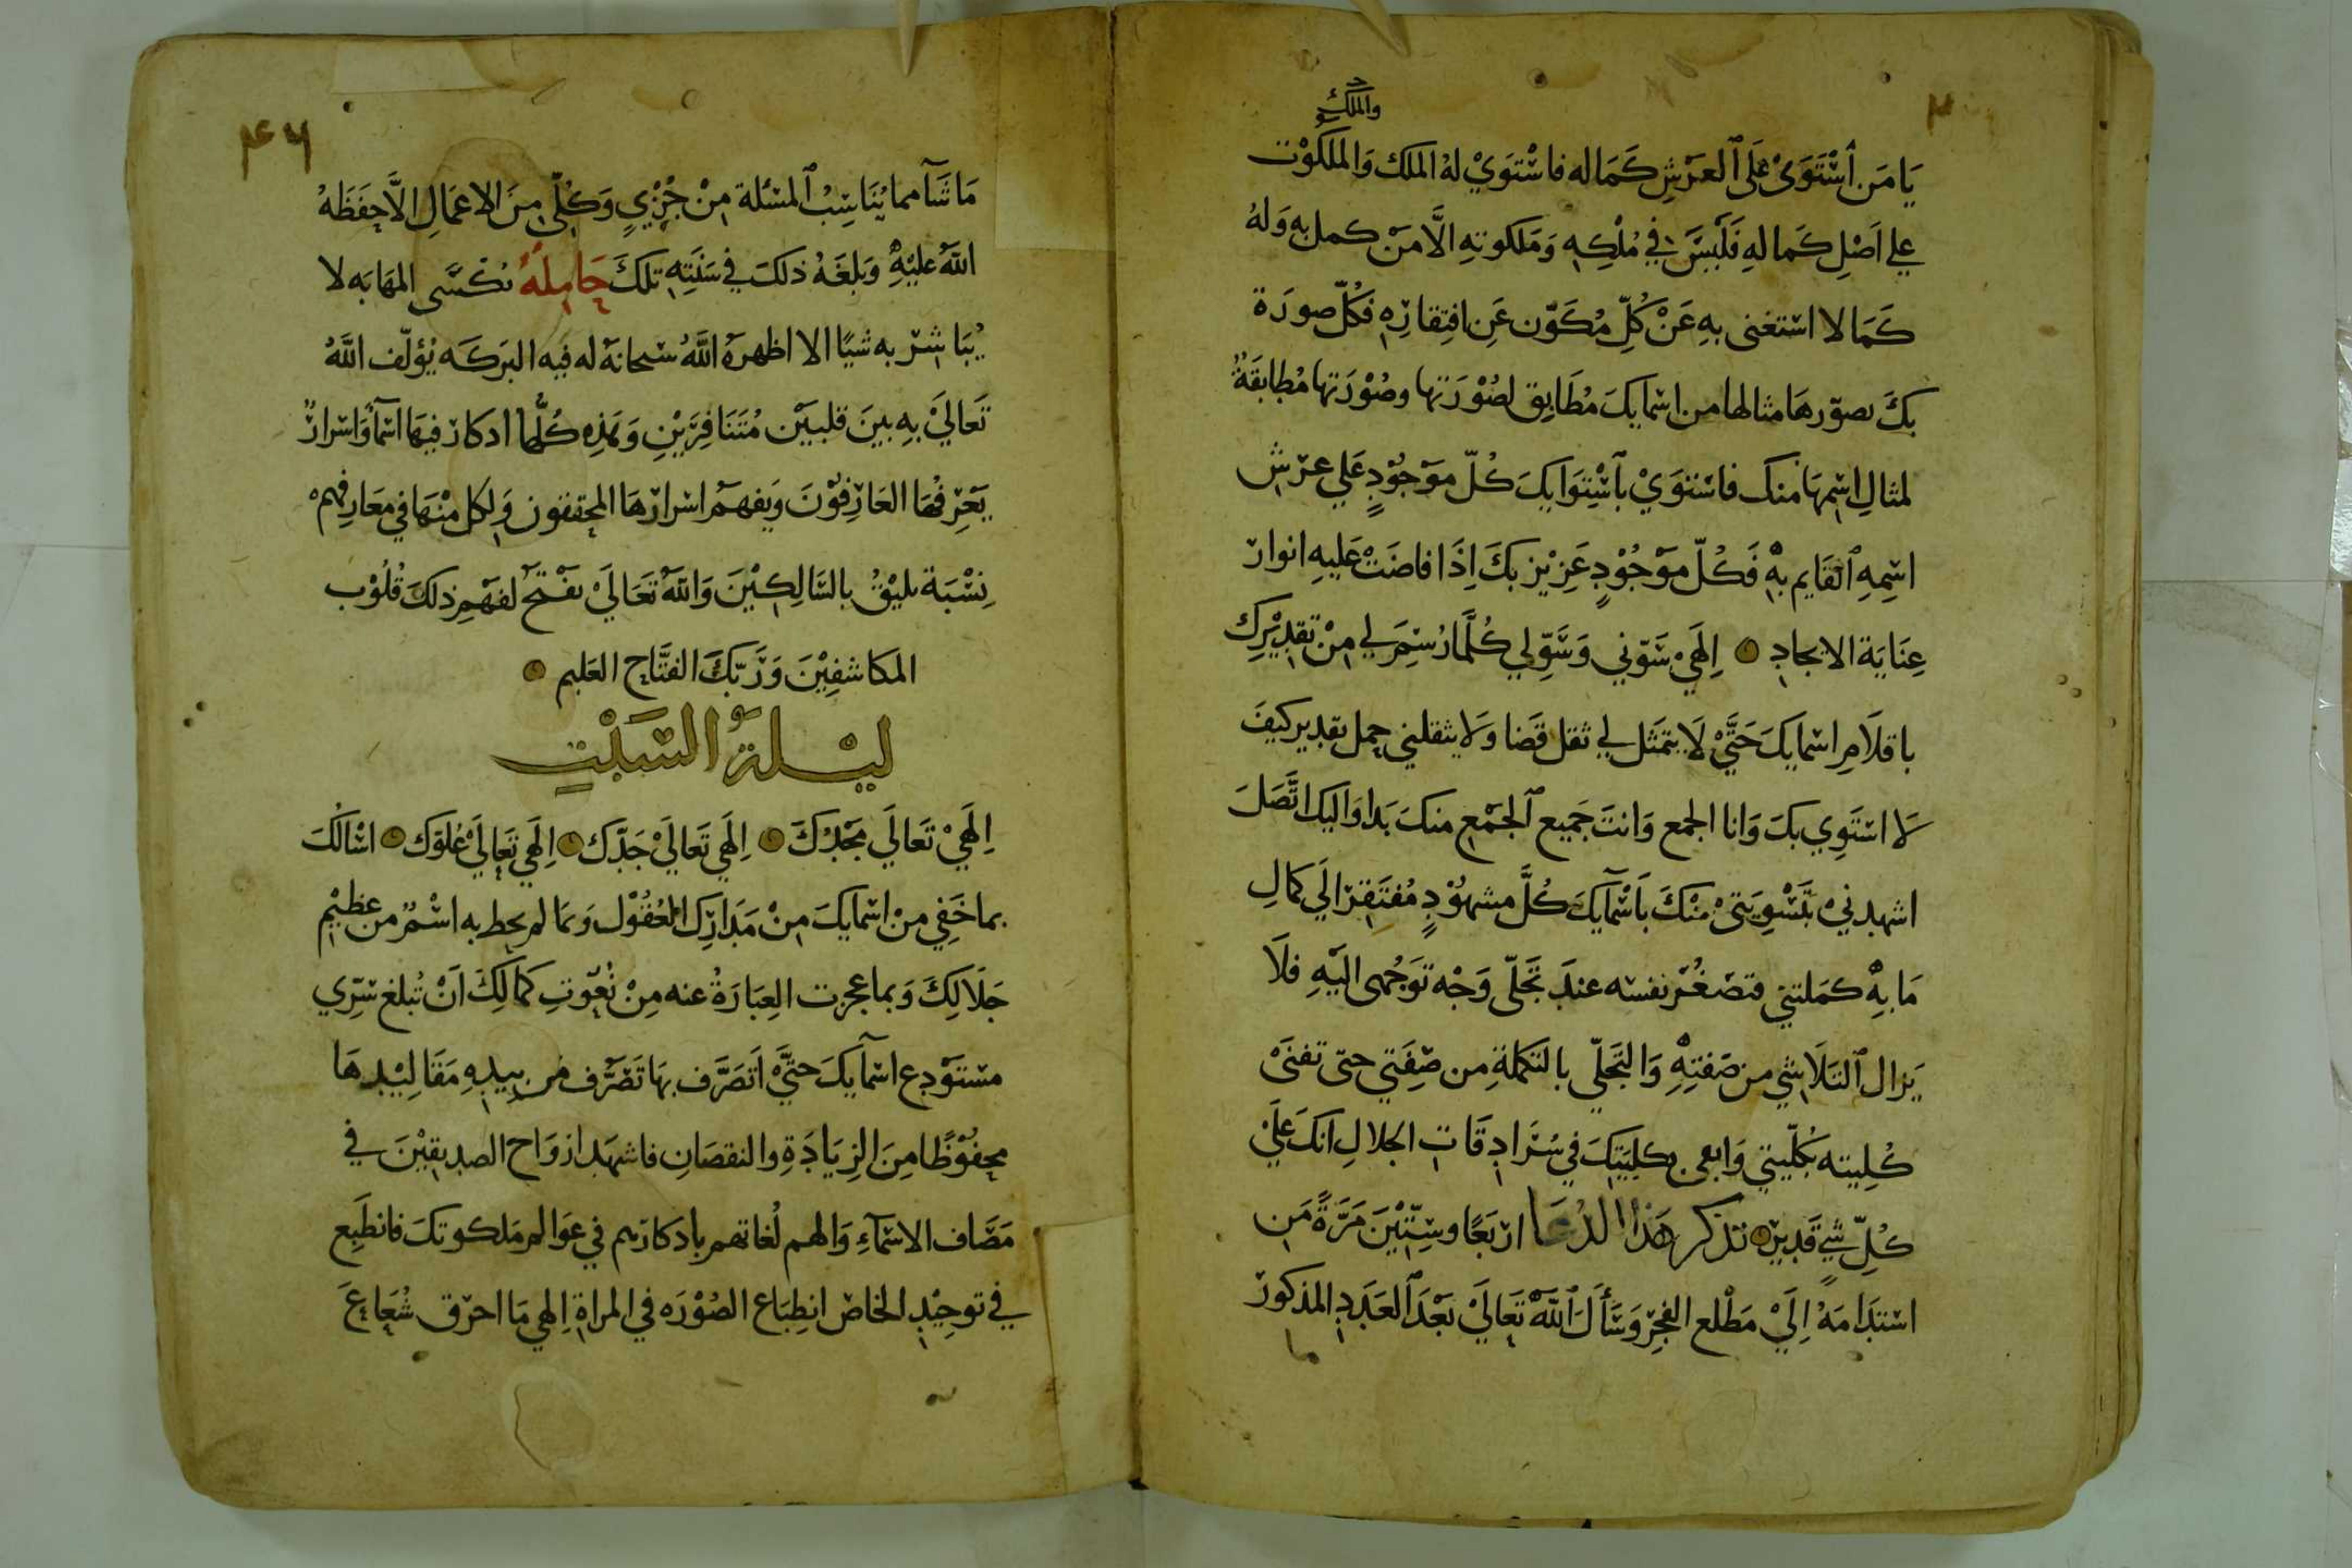 والملك
يَا مَن ٱسْتَوَىٰ عَلَى ٱلعَرْشِ كَمَاله فاسْتوَيْ لهُ الملك وَالملكوْت
علي اَصْلِ كَمالهِ فَلَيسَ في مُلْكِهِ وَمَلكوتهِ الَّا مَنْ كمل به وَلهُ
كَمَالا استغنى بهِ عَنْ كُلِّ مُكَوّن عَنِ افتِقارِهِ فَكُلّ صورَة
بكَ بصوّرهَا مثالها من اسْمايكَ مُطَابِق لصُوْرَتها وصُوْرَتها مُطابقَةٌ
لمثالِ اسْمِهَا مَنك فاسْتوَيْ بٱسْتِوَايكَ كُلّ موْجُوْدٍ عَلي عرْشِ
اسْمِهِ ٱلقَايم بهِ فَكُلّ موْجُوْدٍ عَزِيْز بكَ اِذَا فاضَتْ عَليهِ انوار
عِنَايَة الايجادِ اِلَهيْ سَوّني وَسَوِّلي كُلَّمَا رُسِمَ لي مِنْ تقدِيْرِك
باقلَامِ اسْمايكَ حَتَّيْ لَا يتمَثل لي ثقل قَضا وَلَا يثقلني حمل تقدير كيفَ
لَا اسْتَوِي بكَ وَانا الجمع وَانتَ جَميع ٱلجَمْعِ منكَ بَدا وَاليك اتَّصَلَ
اشهدنيْ بتَسْوِيَتيْ مِنْكَ بَاسْمآيكَ كُلَّ مشهُوْدٍ مُفتَقِرٍ الَي كمالِ
مَا بهِ كمَلتني فتصْغُرْ نفسه عندَ تجَلّى وَجْه توَجُهى اليْهِ فلَا
يَزال ٱلتلَاشي من صَفتِهِ وَالتَجَلّي بالتكملةِ من صِفَتي حتى تفنَىْ
كُلِيته بكُلّيتي وَابقى بكليَتِكَ في سُرَادِقَاتِ الجلالِ انكَ عَلَيْ
كُلِّ شيٍ قَدِيْر تذكر هَذا الدُعَا ارْبَعًا وسِتّيْنَ مَرَّةً مَن
اسْتدَامَهُ اِلَيْ مَطْلع الفجْرِ وَسَأَلَ ٱللَّهَ تَعَاليْ بَعْدَ ٱلعَدَدِ المذكور
ما
٤٦
مَا شَآ مما يُنَاسِبُ ٱلمسْئلة مِنْ جُزْيٍ وَكُلّى مِنَ الاعمَالِ الَّا حِفَظَهُ
اللهُ عليْهِ وَبلغَهُ ذلكَ في سَنَتِهِ تلكَ حَامِلهُ يُكسَّى المهَابَه لا
يُبَاشِرْ به شيًا الا اظهرَهُ اللَّهُ سْبحانهُ له فيه البرَكه يُؤلّف اللَّهُ
تَعَاليَ بهِ بينَ قلبيَنْ مُتَنَافِرَيْنِ وَهَذِه كُلُّها اذكار فيهَا اسْمآ وَاسْرارٌ
يَعْرِفُهَا العَارِفُوْنَ وَيَفهَمُ اسْرارَهَا المحققون وَلِكل مِنْهَا في مَعَارِفِهِمْ
نِسْبَة تليْقُ بالسَالِكيْنَ وَاللهُ تَعَالَيْ يفْتحُ لفهْمِ ذلكَ قُلُوْب
المكاشفِيْنَ وَرَبّكَ الفتَّاح العَليم
ليْلةُ السَبْتِ
اِلَهيْ تَعَاليَ مَجْدُكَ اِلَهي تَعَاليَ جَدّكَ اِلَهي تَعَاليَ عُلوّك اسْالكَ
بما خَفِي منْ اسْمايكَ مِنْ مَدَارِكِ ٱلعُقُوْل وَبما لم يحط به اسْمٌ من عظيْمِ
جَلَالِكَ وَبما عجزت العِبَارَةُ عنه مِنْ نُعُوْتِ كمالِكَ اَنْ تُبلغ سِرّي
مسْتوْدِع اسْمآيكَ حتيَّ اَتصَرَّف بهَا تَصَرُّف من بيدِهِ مَقَالِيْدهَا
محفُوْظًا مِنَ الزِيَادَةِ والنقصَانِ فاشهَد ارْوَاح الصديقيْنَ في
مَصَّاف الاسْمآءِ وَالهم لُغاتهم باذكارهم في عوَالم مَلكوتكَ فانطَبِع
في توحِيْدِ الخاصْ انطِبَاع الصُوْرَه في المراة اِلهي مَا احرَق شُعَاعَ